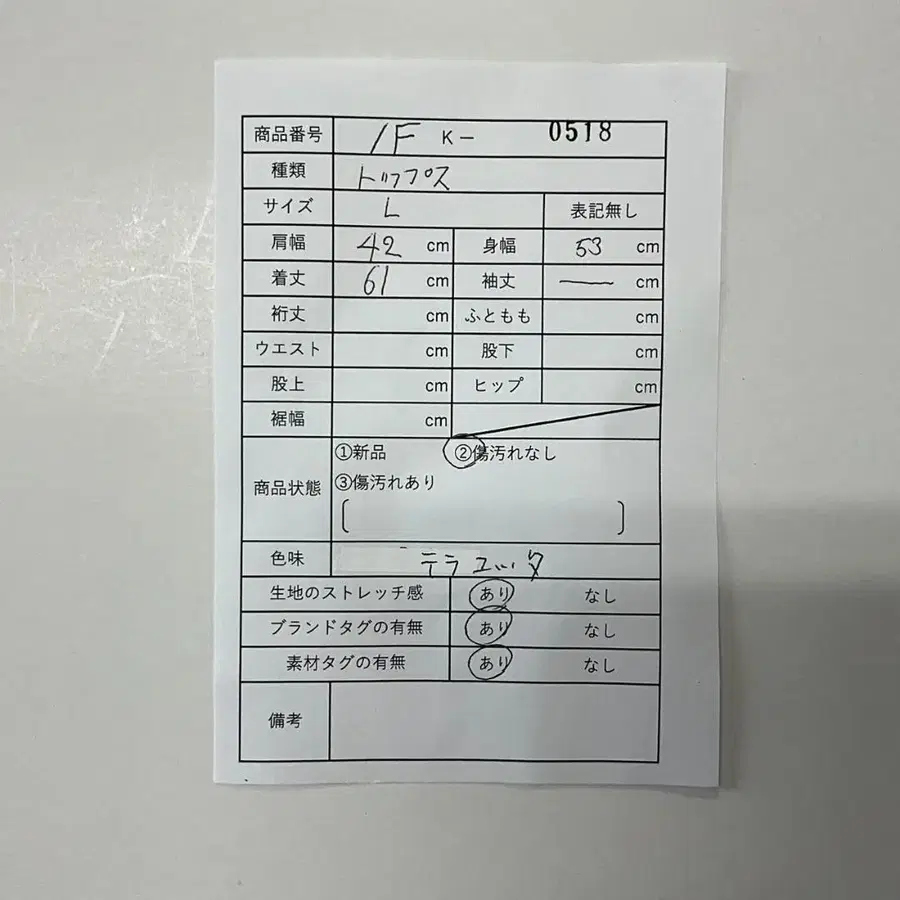 商品番号 1F K- 0518
種類 トップス
サイズ L 表記無し
肩幅 42 cm 身幅 53 cm
着丈 61 cm 袖丈 — cm
裄丈 cm ふともも cm
ウエスト cm 股下 cm
股上 cm ヒップ cm
裾幅 cm
商品状態 ①新品 ②傷汚れなし
③傷汚れあり
[ ]
色味 テラコッタ
生地のストレッチ感 あり なし
ブランドタグの有無 あり なし
素材タグの有無 あり なし
備考